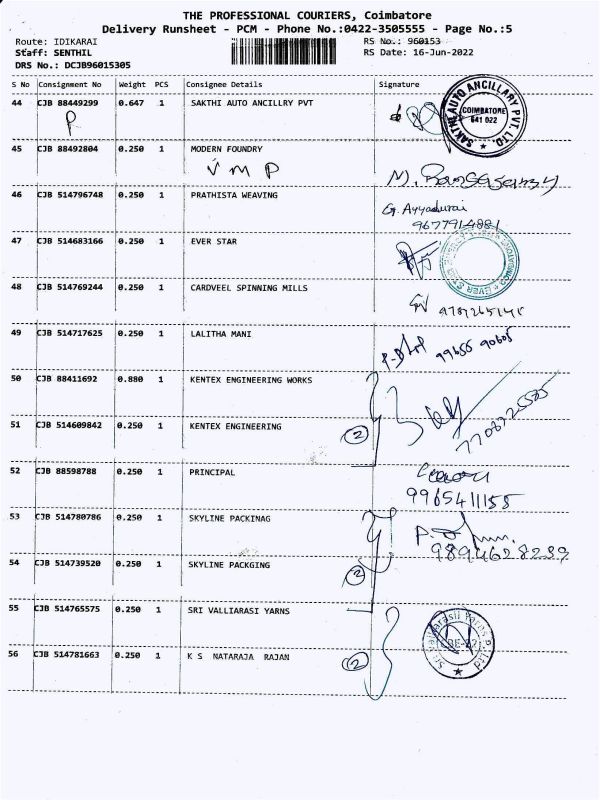 THE PROFESSIONAL COURIERS, Coimbatore
Delivery Runsheet - PCM - Phone No.:0422-3505555 - Page No.:5
Route: IDIKARAI RS No.: 960153
Staff: SENTHIL RS Date: 16-Jun-2022
DRS No.: DCJB96015305
S No Consignment No Weight PCS Consignee Details Signature
44 CJB 88449299 0.647 1 SAKTHI AUTO ANCILLRY PVT
P
SAKTHI AUTO ANCILLARY PVT. LTD.
COIMBATORE
641 022
45 CJB 88492804 0.250 1 MODERN FOUNDRY
V M P
46 CJB 514796748 0.250 1 PRATHISTA WEAVING
G. Ayyadurai
9677914881
47 CJB 514683166 0.250 1 EVER STAR
EVER STAR
48 CJB 514769244 0.250 1 CARDVEEL SPINNING MILLS
49 CJB 514717625 0.250 1 LALITHA MANI
99655 90605
50 CJB 88411692 0.880 1 KENTEX ENGINEERING WORKS
51 CJB 514609842 0.250 1 KENTEX ENGINEERING
2
52 CJB 88598788 0.250 1 PRINCIPAL
9965411158
53 CJB 514780786 0.250 1 SKYLINE PACKINAG
9894628239
54 CJB 514739520 0.250 1 SKYLINE PACKGING
2
55 CJB 514765575 0.250 1 SRI VALLIARASI YARNS
Sri Valliarasii Yarns P Ltd
56 CJB 514781663 0.250 1 K S NATARAJA RAJAN
2